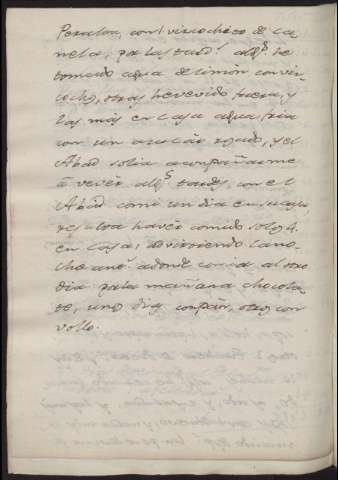 Peralta, con 1 viscochico de Ca
nela, pr. las tards. algs. he
tomado agua de limón con viz
cocho, otras hevevido fuera, y
las mas en casa agua fria
con un rosado, y el
Abad solia acompañarme
á vever algs. tardes, con el
Abad comi un dia en su casa
resulta haver comido solo 4.
en casa: advirtiendo la no
che antr. adonde comia al otro
dia pr. la mañana chocola
te, unos dias con pan, otros con
vollo.